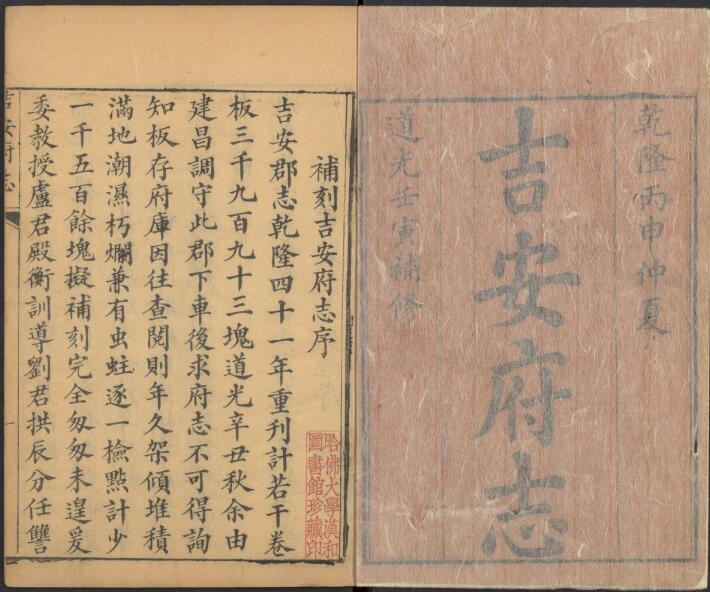 乾隆丙申仲夏
吉安府志
道光壬寅補修
補刻吉安府志序
吉安郡志乾隆四十一年重刋計若干卷
板三千九百九十三塊道光辛丑秋余由
建昌調守此郡下車後求府志不可得詢
知板存府庫因往查閱則年久架傾堆積
滿地潮濕朽爛兼有虫蛀逐一檢點計少
一千五百餘塊擬補刻完全匆匆未遑爰
委教授盧君殿衡訓導劉君拱辰分任讐
吉安府志
一
哈佛大學漢和
圖書館珍藏印